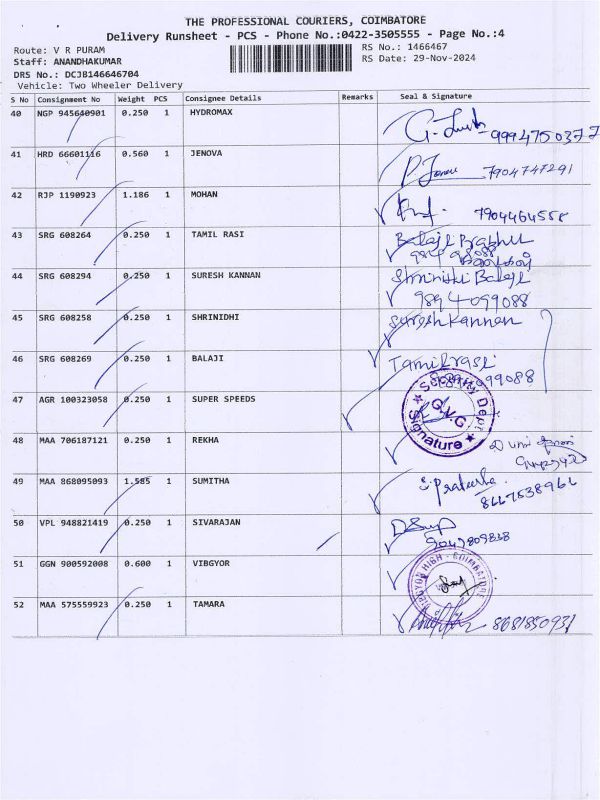 THE PROFESSIONAL COURIERS, COIMBATORE
Delivery Runsheet - PCS - Phone No.:0422-3505555 - Page No.:4
Route: V R PURAM
RS No.: 1466467
Staff: ANANDHAKUMAR
RS Date: 29-Nov-2024
DRS No.: DCJB146646704
Vehicle: Two Wheeler Delivery
S No Consignment No Weight PCS Consignee Details Remarks Seal & Signature
40 NGP 945640901 0.250 1 HYDROMAX
41 HRD 66601116 0.560 1 JENOVA 7904747291
42 RJP 1190923 1.186 1 MOHAN
43 SRG 608264 0.250 1 TAMIL RASI Balaji Prabhu
44 SRG 608294 0.250 1 SURESH KANNAN Shrinidhi Balaji
9894099088
45 SRG 608258 0.250 1 SHRINIDHI Suresh Kannan
46 SRG 608269 0.250 1 BALAJI Tamilrasi
47 AGR 100323058 0.250 1 SUPER SPEEDS
Security Dept
G.V.G
Signature
48 MAA 706187121 0.250 1 REKHA
49 MAA 868095093 1.585 1 SUMITHA
50 VPL 948821419 0.250 1 SIVARAJAN
51 GGN 900592008 0.600 1 VIBGYOR
VIBGYOR HIGH - COIMBATORE
52 MAA 575559923 0.250 1 TAMARA 8681850931